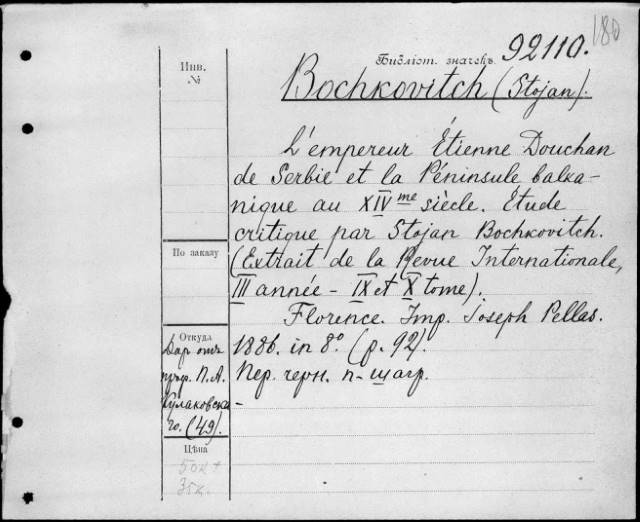 180
Библіот. значекъ. 92110.
Инв.
№
Bochkovitch (Stojan).
L'empereur Étienne Douchan
de Serbie et la Péninsule balka-
nique au XIV me siècle. Étude
critique par Stojan Bochkovitch.
(Extrait de la Revue Internationale,
III année - IX et X tome).
Florence. Imp. Joseph Pellas.
1886. in 8° (p. 92).
Пер. черн. п-шагр.
По заказу
Откуда
Дар отъ
проф. П. А.
Кулаковска-
го. (49).
Цѣна
50к +
35к.